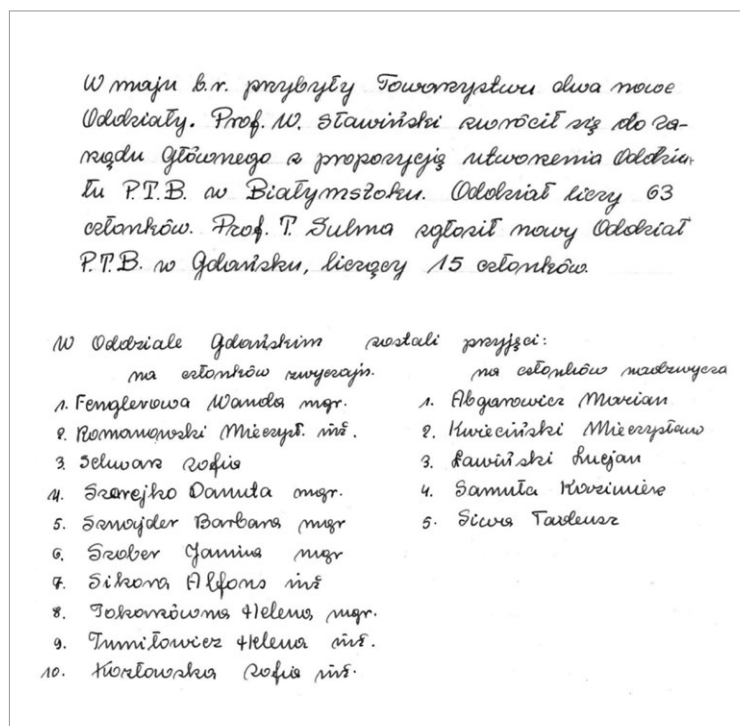 W maju b.r. przybyły Towarzystwu dwa nowe
Oddziały. Prof. W. Sławiński zwrócił się do Za-
rządu Głównego z propozycją utworzenia Oddzia-
łu P.T.B. w Białymstoku. Oddział liczy 63
członków. Prof. T. Sulma zgłosił nowy Oddział
P.T.B. w Gdańsku, liczący 15 członków.
W Oddziale Gdańskim zostali przyjęci:
na członków zwyczajn.
1. Fenglerowa Wanda mgr.
2. Romanowski Mieczysł. inż.
3. Schwarz Zofia
4. Szarejko Danuta mgr.
5. Sznajder Barbara mgr
6. Szober Janina mgr
7. Sikora Alfons inż
8. Tokarzówna Helena, mgr.
9. Tumiłowicz Helena inż.
10. Kozłowska Zofia inż.
na członków nadzwycza
1. Abganowicz Marian
2. Kwieciński Mieczysław
3. Ławiński Lucjan
4. Samuła Kazimierz
5. Siwa Tadeusz